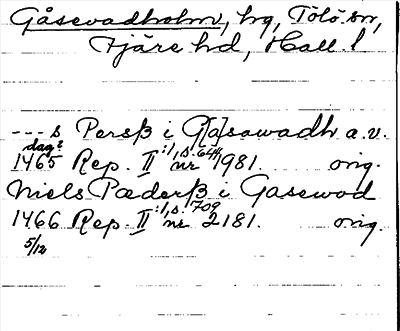 Gåsevadholm, hg, Tölö sn,
Fjäre hd, Hall. l
--- s Persß i G[a]sawadh a.v.
dag?
1465 Rep. II:1, s. 644 nr 1981. orig.
Niels Pæderß i Gasewod
1466 Rep. II:1, s. 709 nr 2181. orig.
5/12